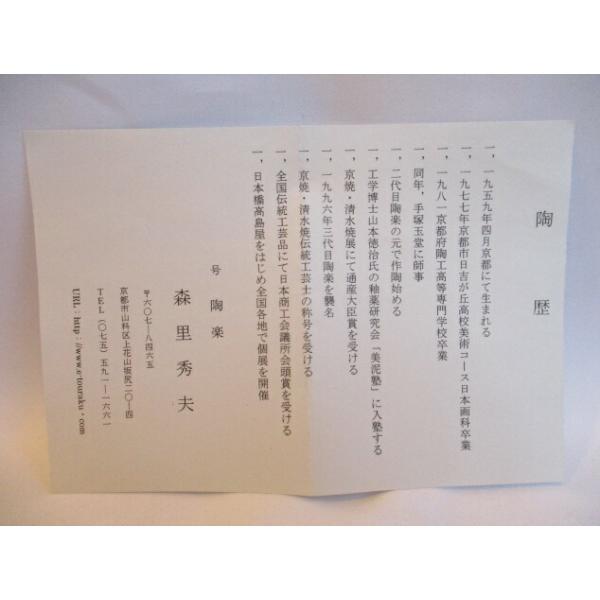 陶歴
一、一九五九年四月京都にて生まれる
一、一九七七年京都市日吉が丘高校美術コース日本画科卒業
一、一九八一京都府陶工高等専門学校卒業
一、同年、手塚玉堂に師事
一、二代目陶楽の元で作陶始める
一、工学博士山本徳治氏の釉薬研究会「美泥塾」に入塾する
一、京焼・清水焼展にて通産大臣賞を受ける
一、一九九六年三代目陶楽を襲名
一、京焼・清水焼伝統工芸士の称号を受ける
一、全国伝統工芸品にて日本商工会議所会頭賞を受ける
一、日本橋高島屋をはじめ全国各地で個展を開催
号 陶楽
森里秀夫
〒六〇七―八四六五
京都市山科区上花山坂尻二〇―四
TEL（〇七五）五九一―一六六一
URL：http：//www.e-touraku・com